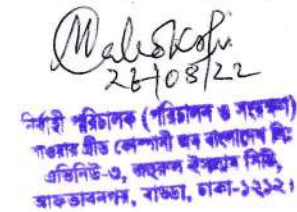 22/08/22
নির্বাহী পরিচালক (পরিচালন ও সংরক্ষণ)
পাওয়ার গ্রীড কোম্পানী অব বাংলাদেশ লিঃ
এভিনিউ-৩, জহুরুল ইসলাম সিটি,
আফতাবনগর, বাড্ডা, ঢাকা-১২১২।